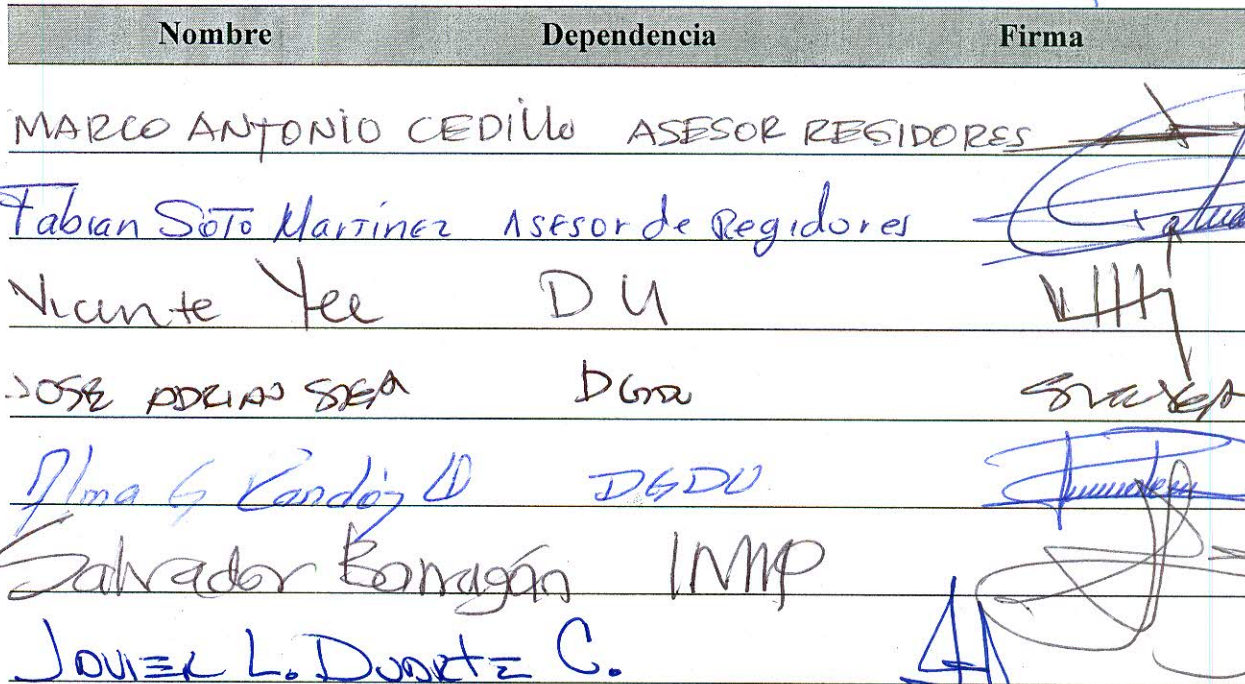 Nombre Dependencia Firma
MARCO ANTONIO CEDILLO ASESOR REGIDORES
Fabian Soto Martínez Asesor de Regidores
Vicente Yee DU
JOSE ADRIAN
Alma G DGDU
Salvador INMP
JAVIER L. DUARTE C.